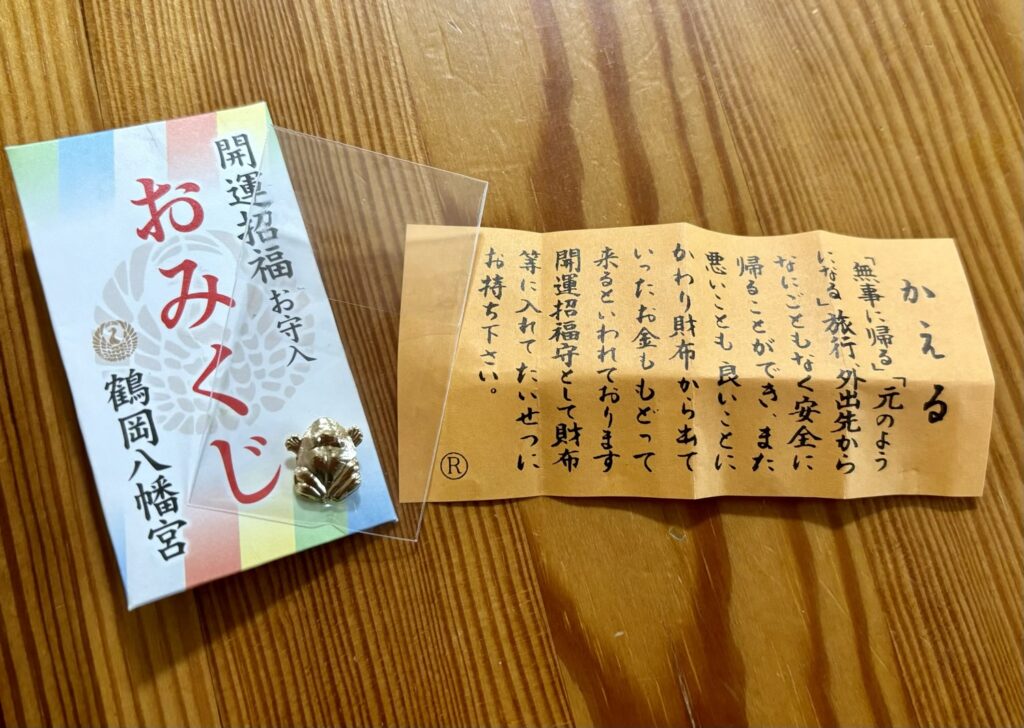 開運招福お守入
おみくじ
鶴岡八幡宮
かえる
「無事に帰る」「元のよう
になる」旅行、外出先から
なにごともなく安全に
帰ることができ、また
悪いことも良いことに
かわり財布から出て
いったお金ももどって
来るといわれております
開運招福守として財布
等に入れてたいせつに
お持ち下さい。
®